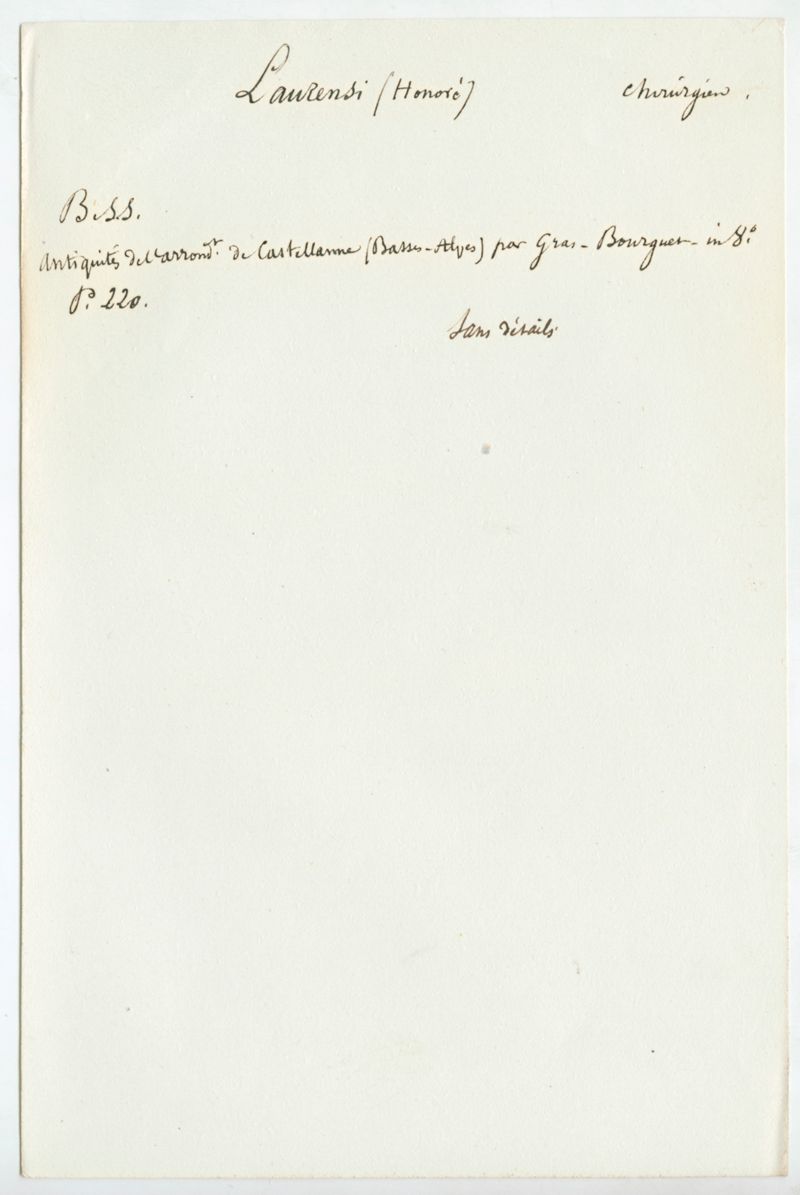 Laurensi (Honoré) chirurgien.
B.S.S.
Antiquités de l'arrondt. de Castellanne (Basses-Alpes) par Gras-Bourguet - in 8.o
P. 220.
Sans détails